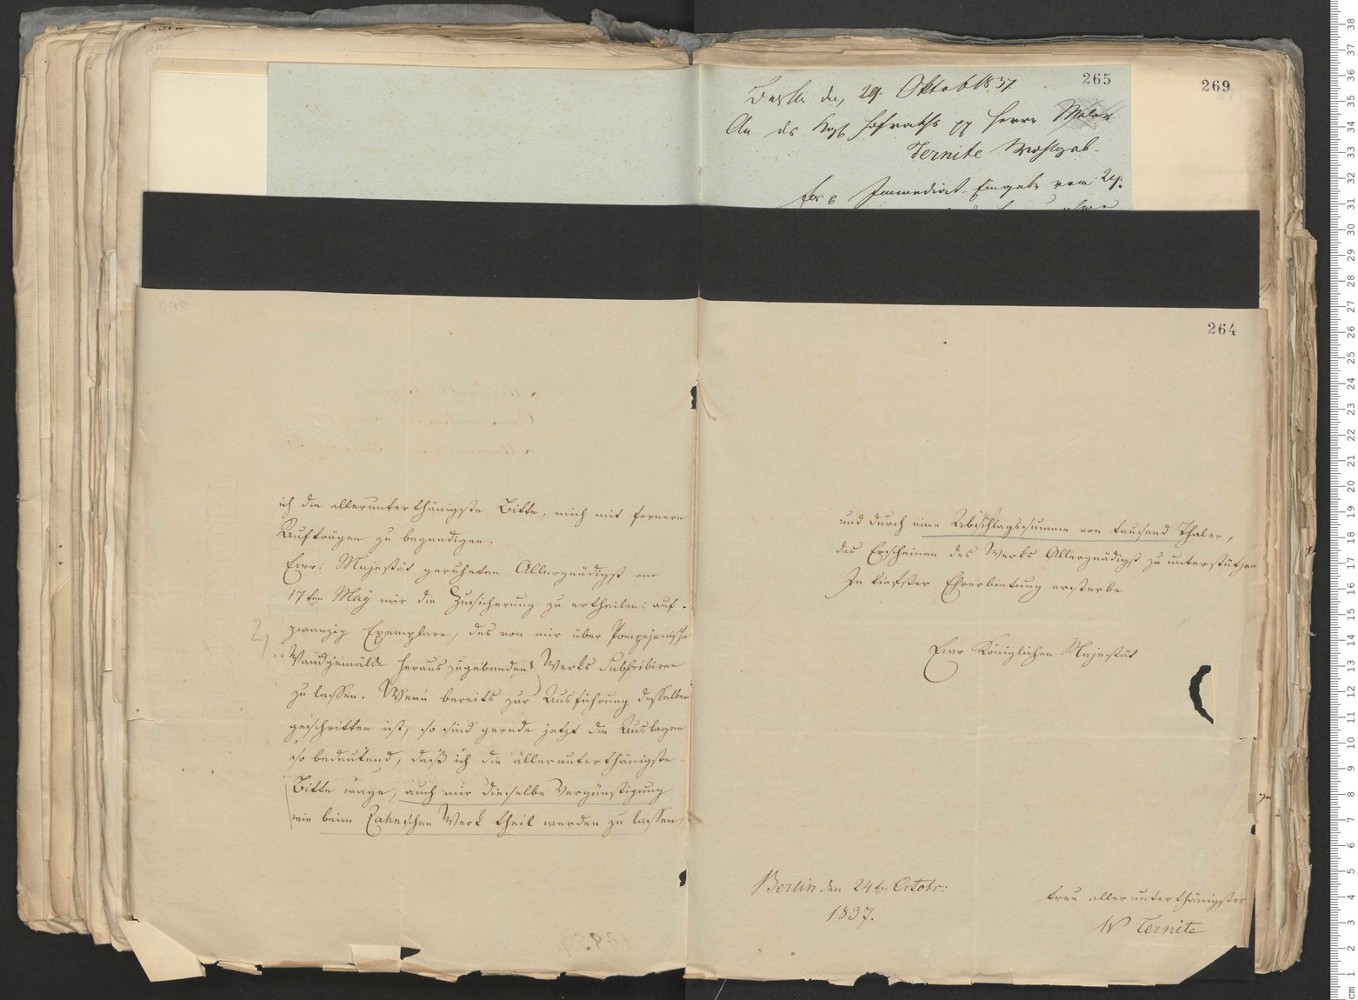 265
269
Berlin den, 29. Oktob 1837
An des Kgl. Hofraths pp Herrn Maler
Ternite Wohlgeb.
Immediat-Eingabe vom 24.
264
ich die allerunterthänigste Bitte, mich mit fernern
Aufträgen zu begnadigen.
Ewr: Majestät geruheten Allergnädigst am
17ten May mir die Zusicherung zu ertheilen: auf
zwanzig Exemplare, des von mir über Pompejanische
Wandgemälde herauszugebenden Werks subscribiren
zu lassen. Wenn bereits zur Ausführung desselben
geschritten ist, so sind gerade jetzt die Auslagen
so bedeutend, daß ich die allerunterthänigste
Bitte wage, auch mir dieselbe Vergünstigung
wie beim Zahnschen Werk theil werden zu lassen,
und durch eine Abschlagssumme von tausend Thaler,
das Erscheinen des Werks Allergnädigst zu unterstützen
In tiefster Ehrerbietung ersterbe
Ewr Königlichen Majestät
Berlin den 24ten Octobr:
1837.
treu allerunterthänigster
W Ternite